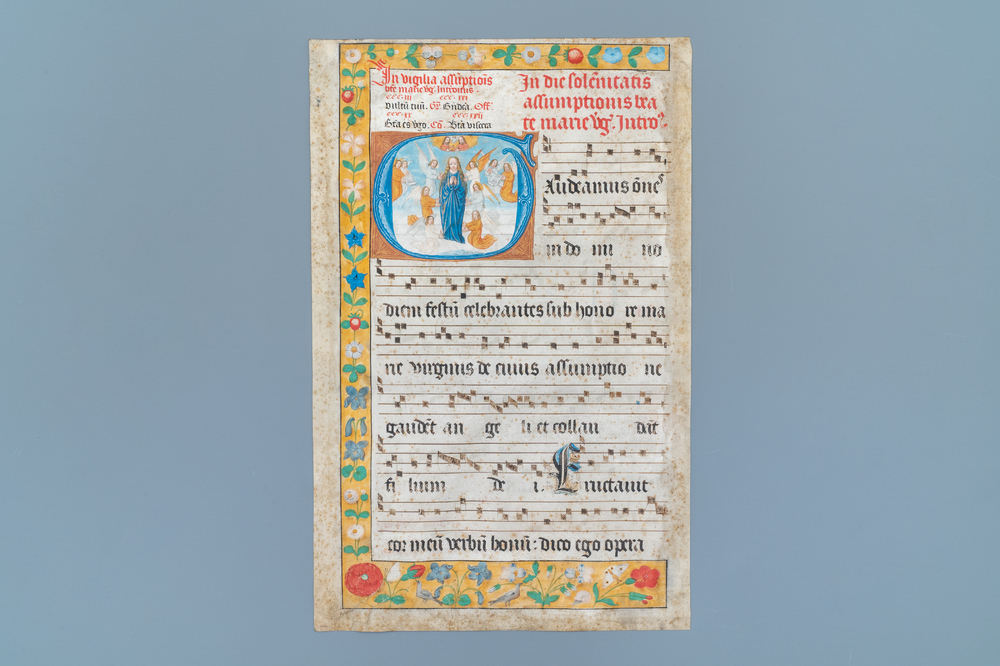 In vigilia assūptiōis
bte marie vg̃. Introitus.
ccc·iii ccc·xxi
vultū tuū. Gr̃. Bn̄dc̄a. Off.
ccc·xx ccc·xxii
Bt̄a es v̾go. Cō. Bt̄a viscera
In die solēnitatis
assumptionis bea
te marie v̾g̃. Introº.
Audeamus ōnes
in do mi no
diem festū celebrantes sub hono re ma
rie virginis de cuius assumptio ne
gaudēt an ge li et collau dāt
fi lium de i. Eructauit
cor meū verbū bonū: dico ego opera